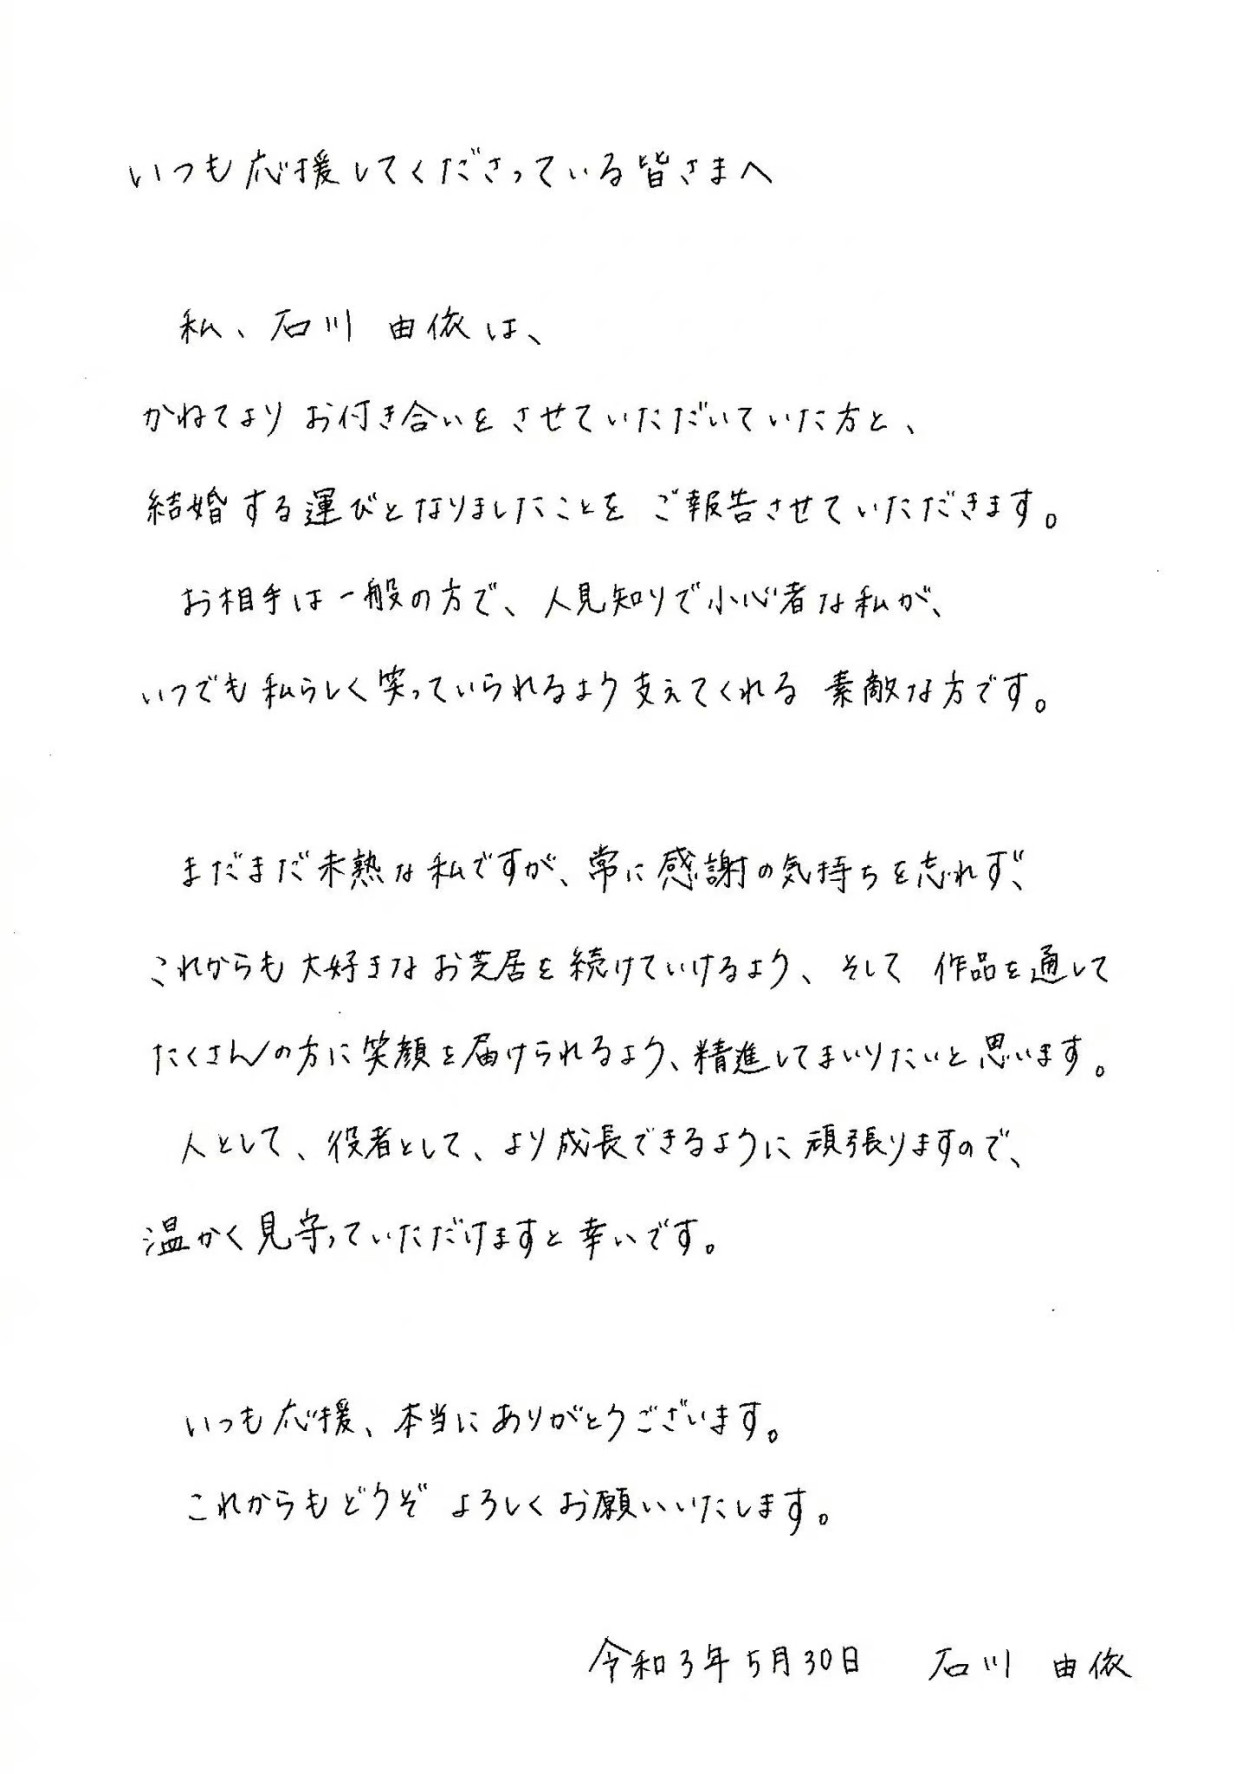 いつも応援してくださっている皆さまへ
私、石川 由依は、
かねてより お付き合いを させていただいていた方と、
結婚する運びとなりましたことを ご報告させていただきます。
お相手は一般の方で、人見知りで小心者な私が、
いつでも私らしく笑っていられるよう支えてくれる 素敵な方です。
まだまだ未熟な私ですが、常に感謝の気持ちを忘れず、
これからも大好きなお芝居を続けていけるよう、そして 作品を通して
たくさんの方に笑顔を届けられるよう、精進してまいりたいと思います。
人として、役者として、より成長できるように頑張りますので、
温かく見守っていただけますと幸いです。
いつも応援、本当にありがとうございます。
これからもどうぞ よろしくお願いいたします。
令和3年5月30日 石川 由依